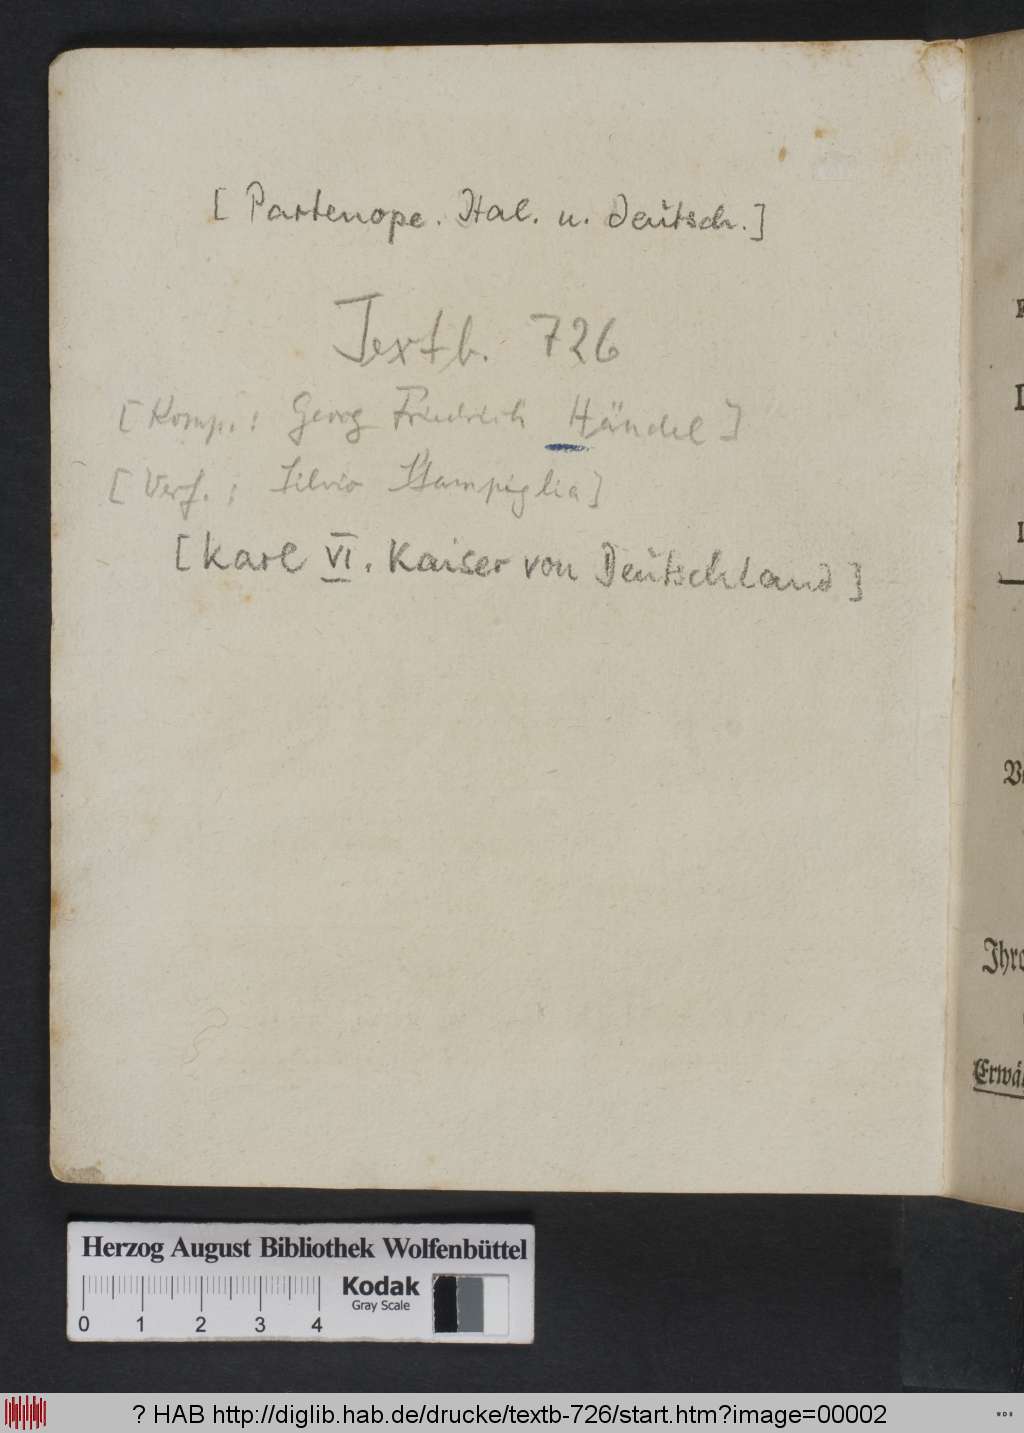 [Partenope. Ital. u. deutsch.]
Textb. 726
[Komp.: Georg Friedrich Händel]
[Verf.: Silvio Stampiglia]
[Karl VI. Kaiser von Deutschland]
Ihro
Erwäh
Herzog August Bibliothek Wolfenbüttel
Kodak
Gray Scale
0 1 2 3 4
? HAB http://diglib.hab.de/drucke/textb-726/start.htm?image=00002